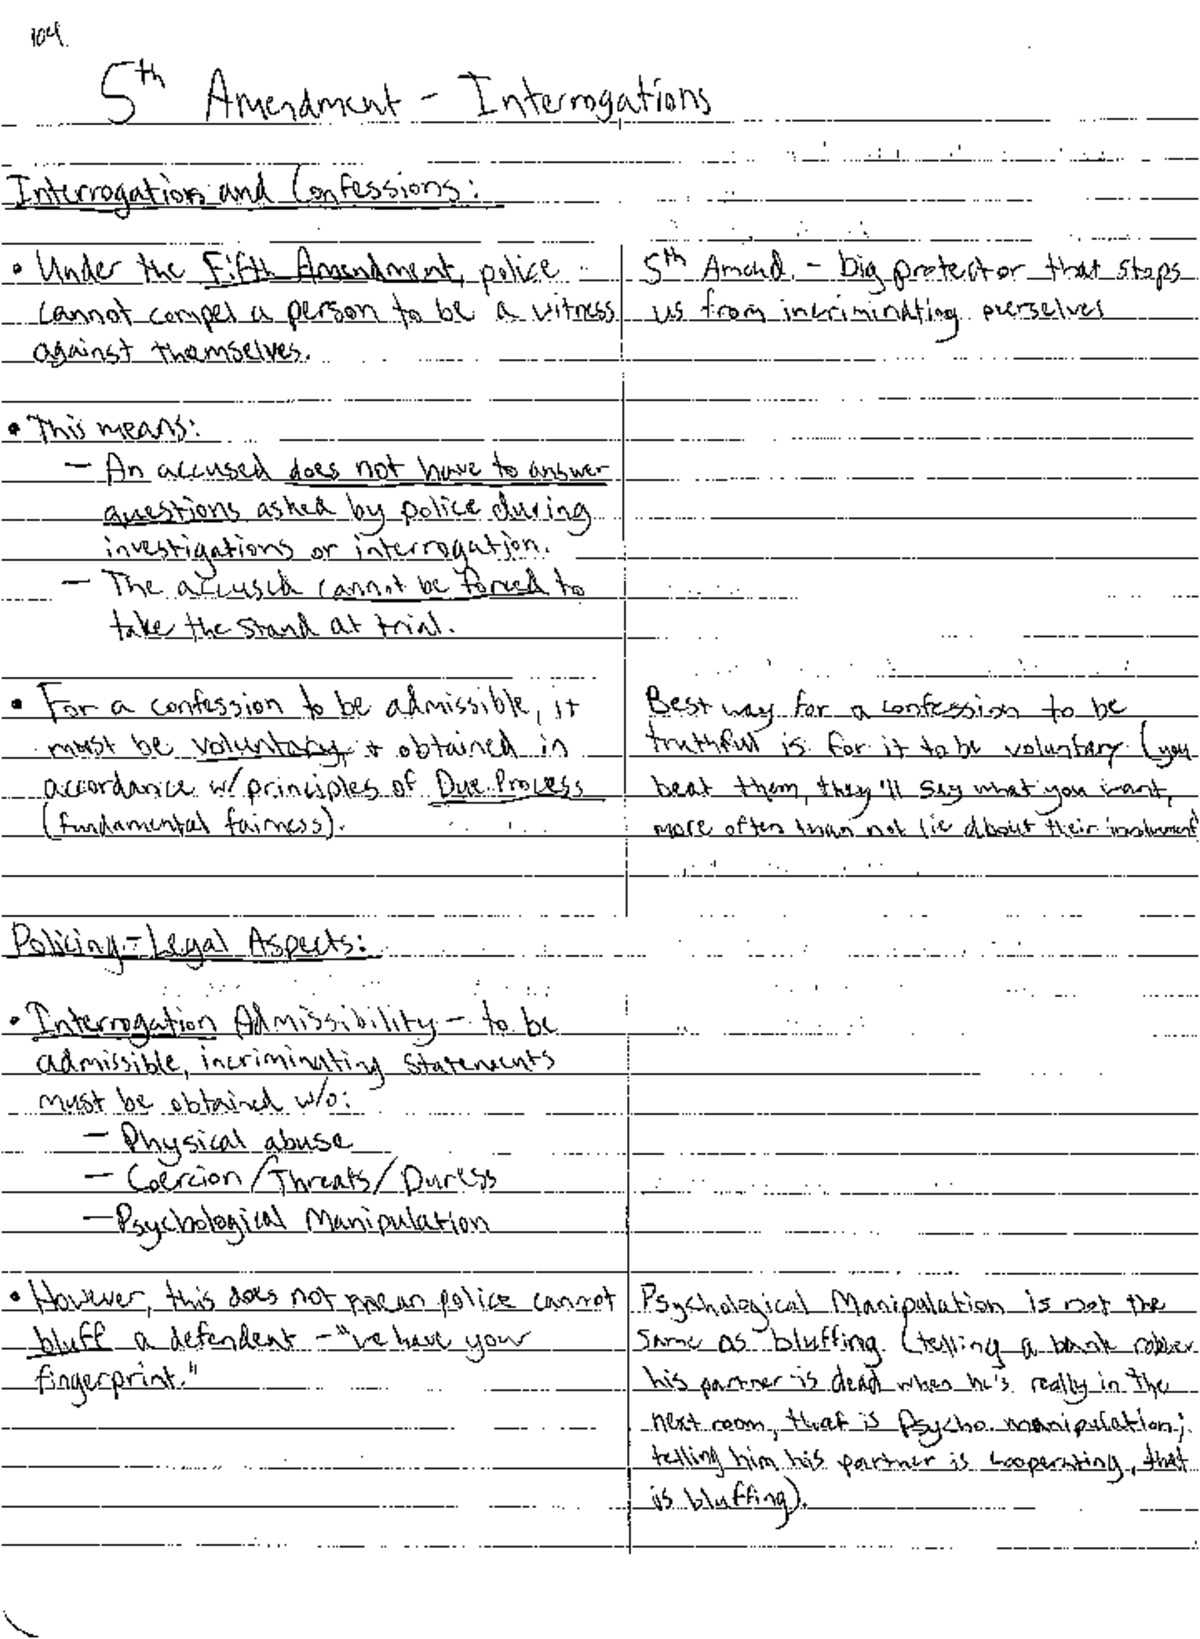 104.
5th Amendment - Interrogations
Interrogation and Confessions:
• Under the Fifth Amendment, police
cannot compel a person to be a witness
against themselves.
5th Amend. - big protector that stops
us from incriminating ourselves
• This means:
- An accused does not have to answer
questions asked by police during
investigations or interrogation.
- The accused cannot be forced to
take the stand at trial.
• For a confession to be admissible, it
must be voluntary + obtained in
accordance w/ principles of Due Process
(fundamental fairness).
Best way for a confession to be
truthful is for it to be voluntary (you
beat them, they'll say what you want,
more often than not lie about their involvement
Policing - Legal Aspects:
• Interrogation Admissibility - to be
admissible, incriminating statements
must be obtained w/o:
- Physical abuse
- Coercion/Threats/Duress
- Psychological Manipulation
• However, this does not mean police cannot
bluff a defendent - "we have your
fingerprint."
Psychological Manipulation is not the
same as bluffing (telling a bank robber
his partner is dead when he's really in the
next room, that is Psycho. manipulation;
telling him his partner is cooperating, that
is bluffing).